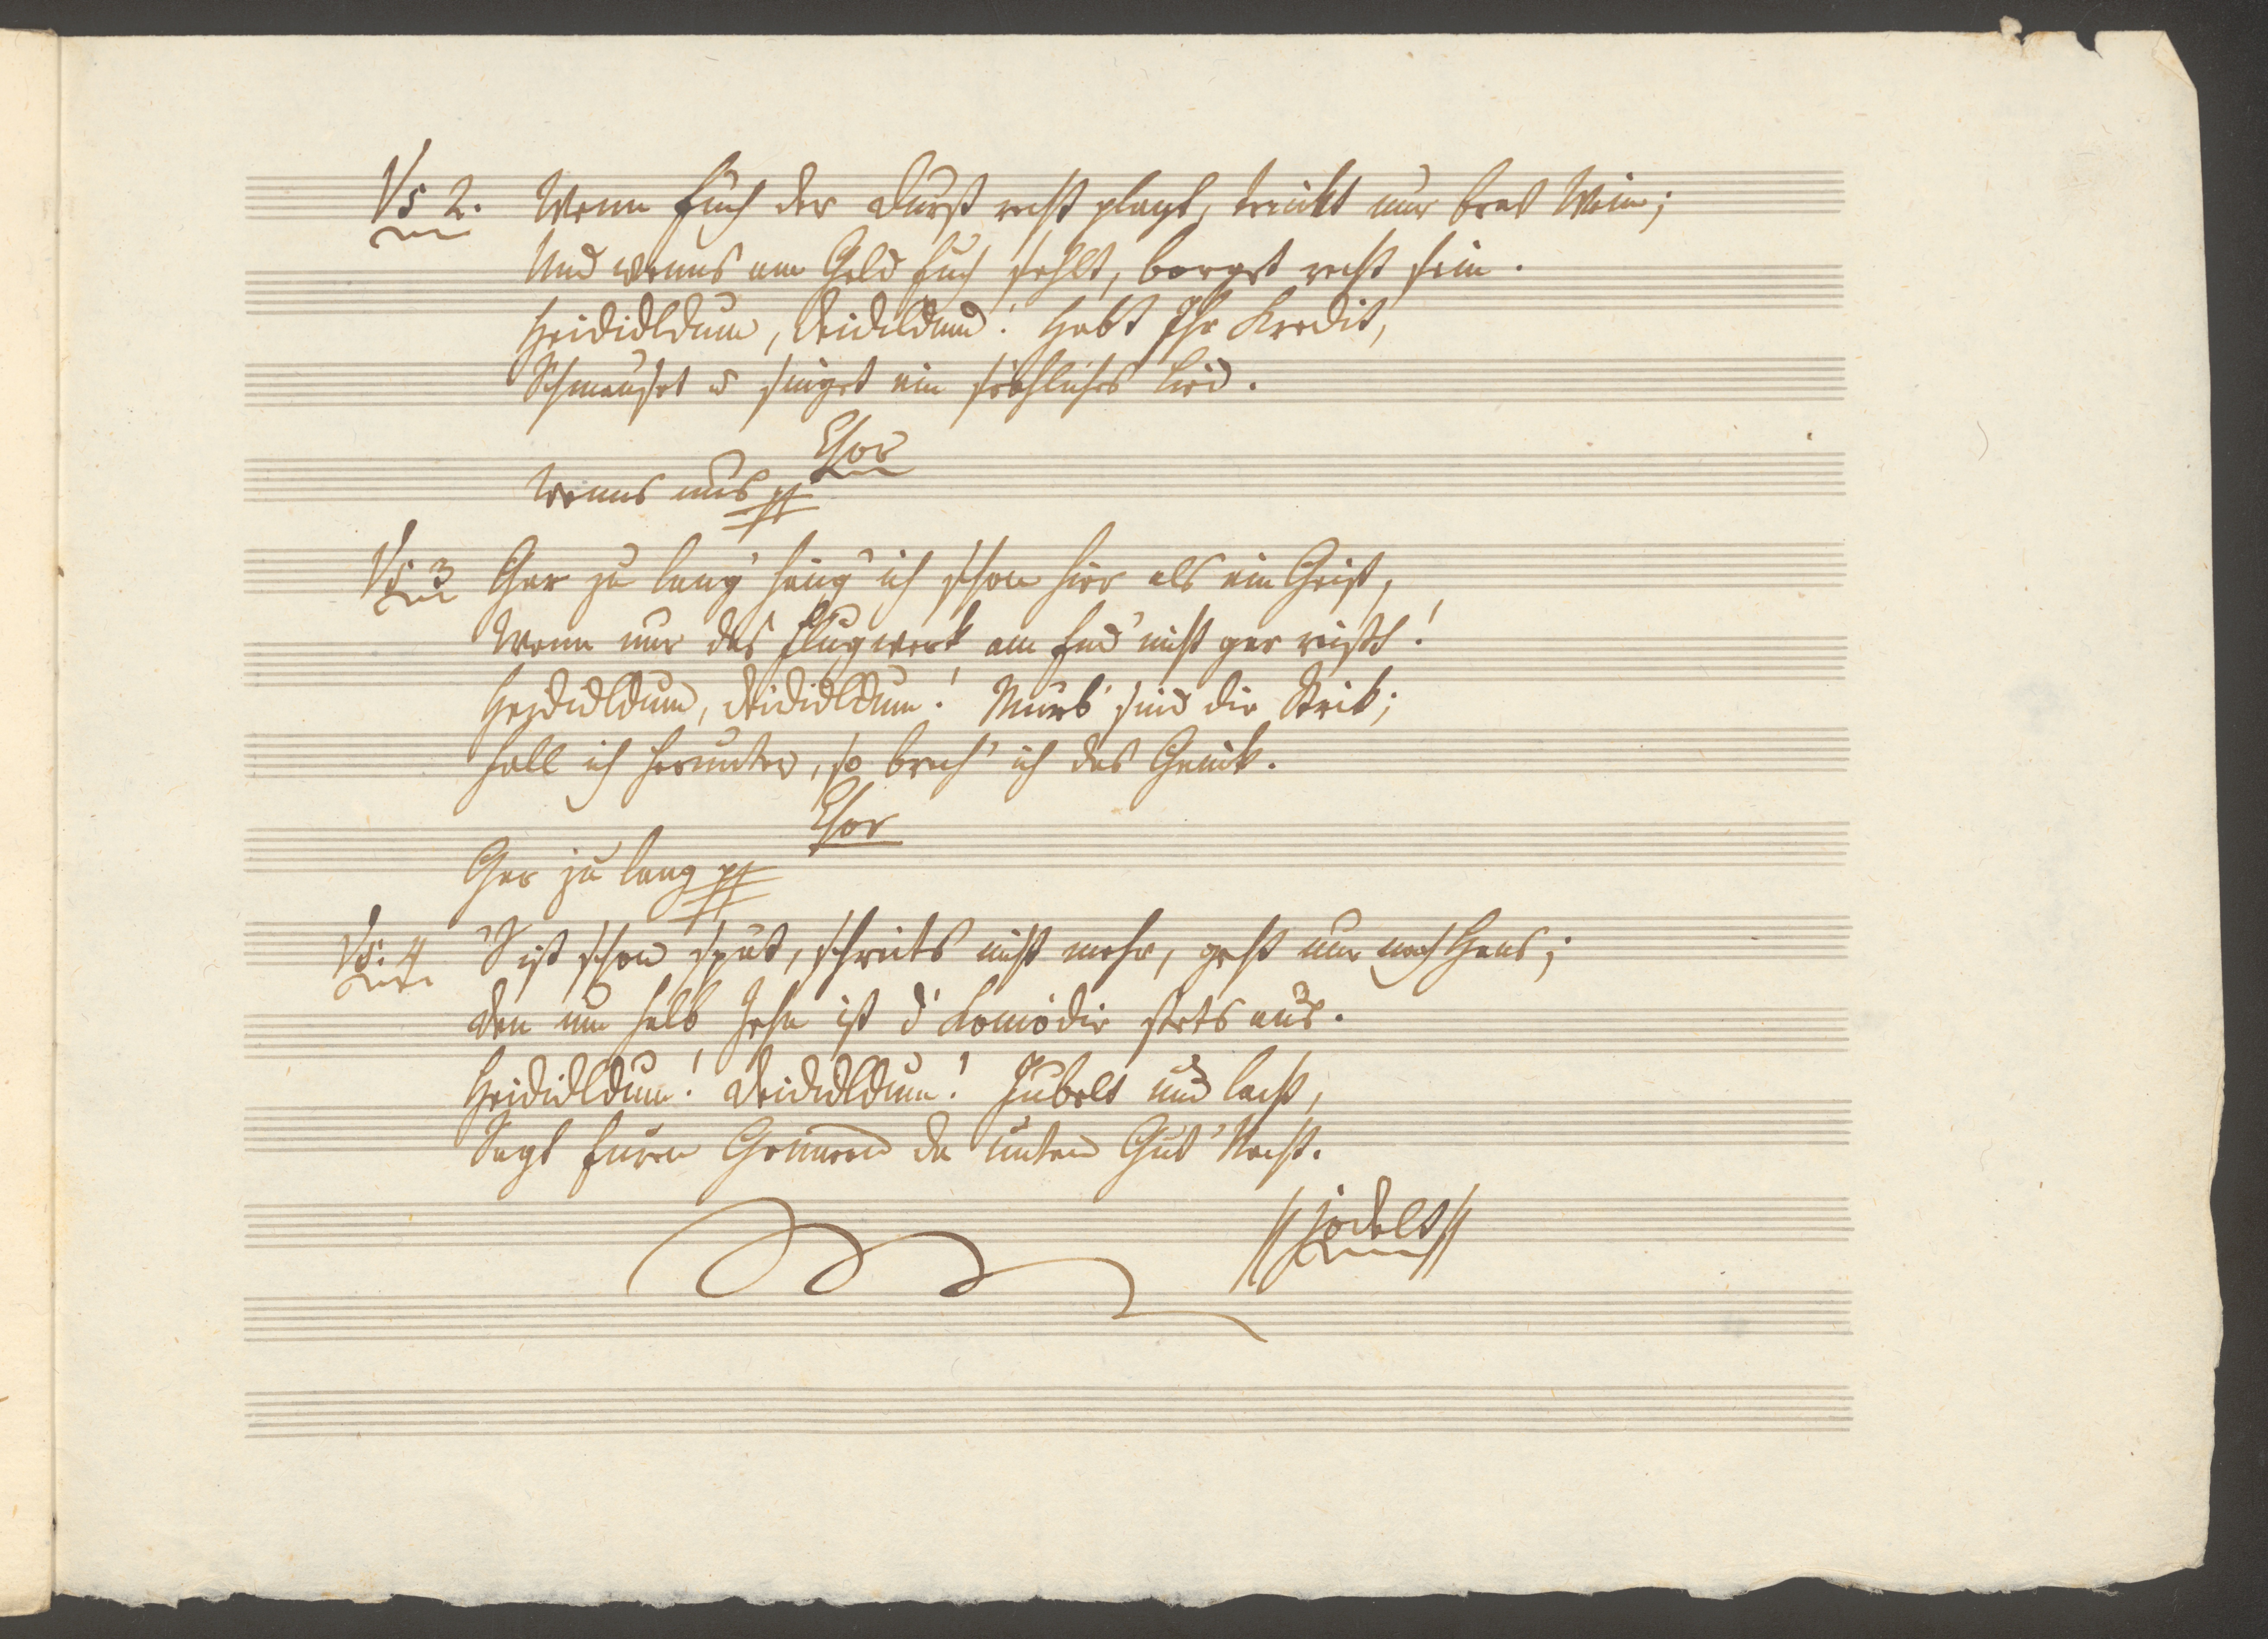 Vs 2. Wenn Euch der Durst recht plagt, trinkt nur brav Wein;
Und wenns am Geld Euch fehlt, borget recht fein.
Heididldum, Deididldum! Habt Ihr Kredit,
Schmauset u singet ein fröhliches Lied.
Chor
Wenns uns pp
Vs. 3 Gar zu lang häng' ich schon hier als ein Geist,
Wenn nur das Flugwerk am End' nicht gar reißt!
Heididldum, Deididldum! Mürb' sind die Strik;
Fall ich herunter, so brech' ich das Genick.
Chor
Gar zu lang pp
Vs. 4 'S ist schon spät, schreits nicht mehr, geht nur nach Haus;
Den um halb Zehn ist d' Komödie stets aus.
Heididldum! Deididldum! Jubelt und lacht,
Sagt Euren Gönnern da unten Gut' Nacht.
// jodelt //